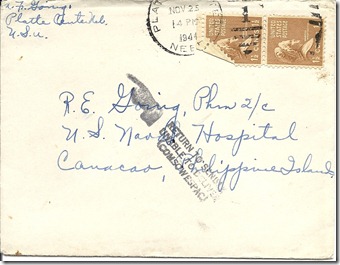 Going,
Platte Center, Neb.
U.S.A.
PLATT
NOV 25
4 PM
1941
NEB
UNITED STATES POSTAGE
R. E. Going, Phm 2/c
U. S. Naval Hospital
Canacao, Philippine Islands
RETURN TO SENDER